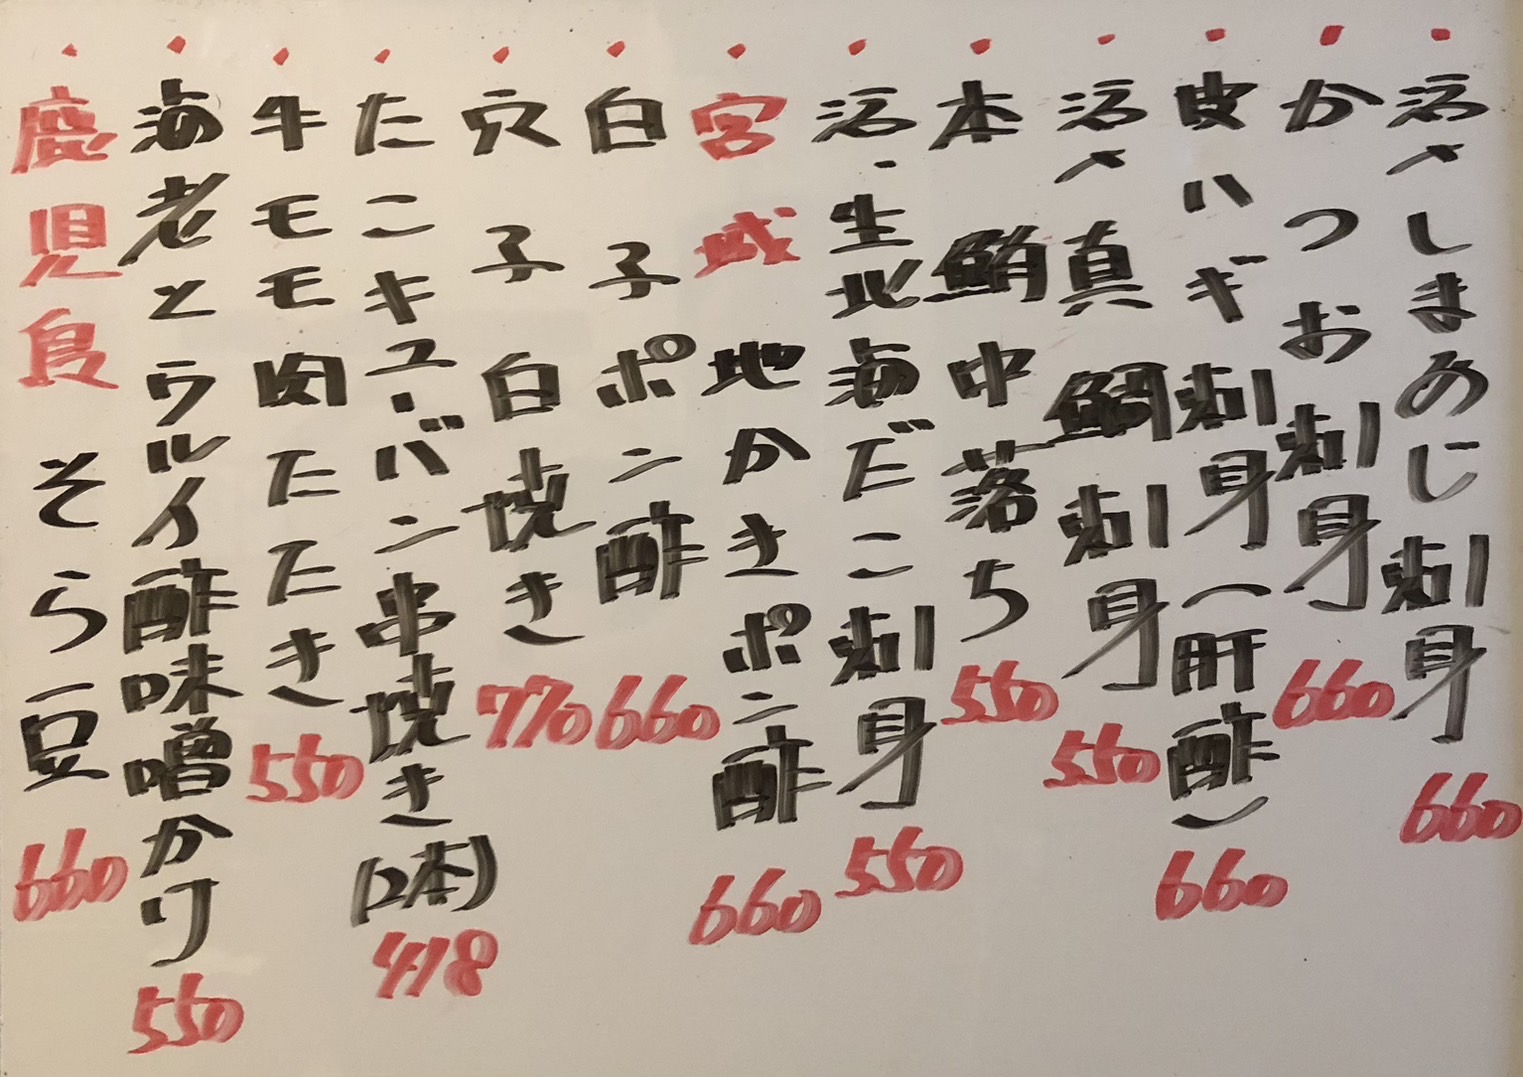 ・活〆しまあじ刺身 660
・かつお刺身 660
・皮ハギ刺身(肝酢) 660
・活〆真鯛刺身 550
・本鮪中落ち 550
・活・生北海だこ刺身 550
・宮城地かきポン酢 660
・白子ポン酢 660
・穴子白焼き 770
・たこキューバン串焼き(2本) 418
・牛モモ肉たたき 550
・海老とウルイ酢味噌かけ 550
・鹿児島 そら豆 660